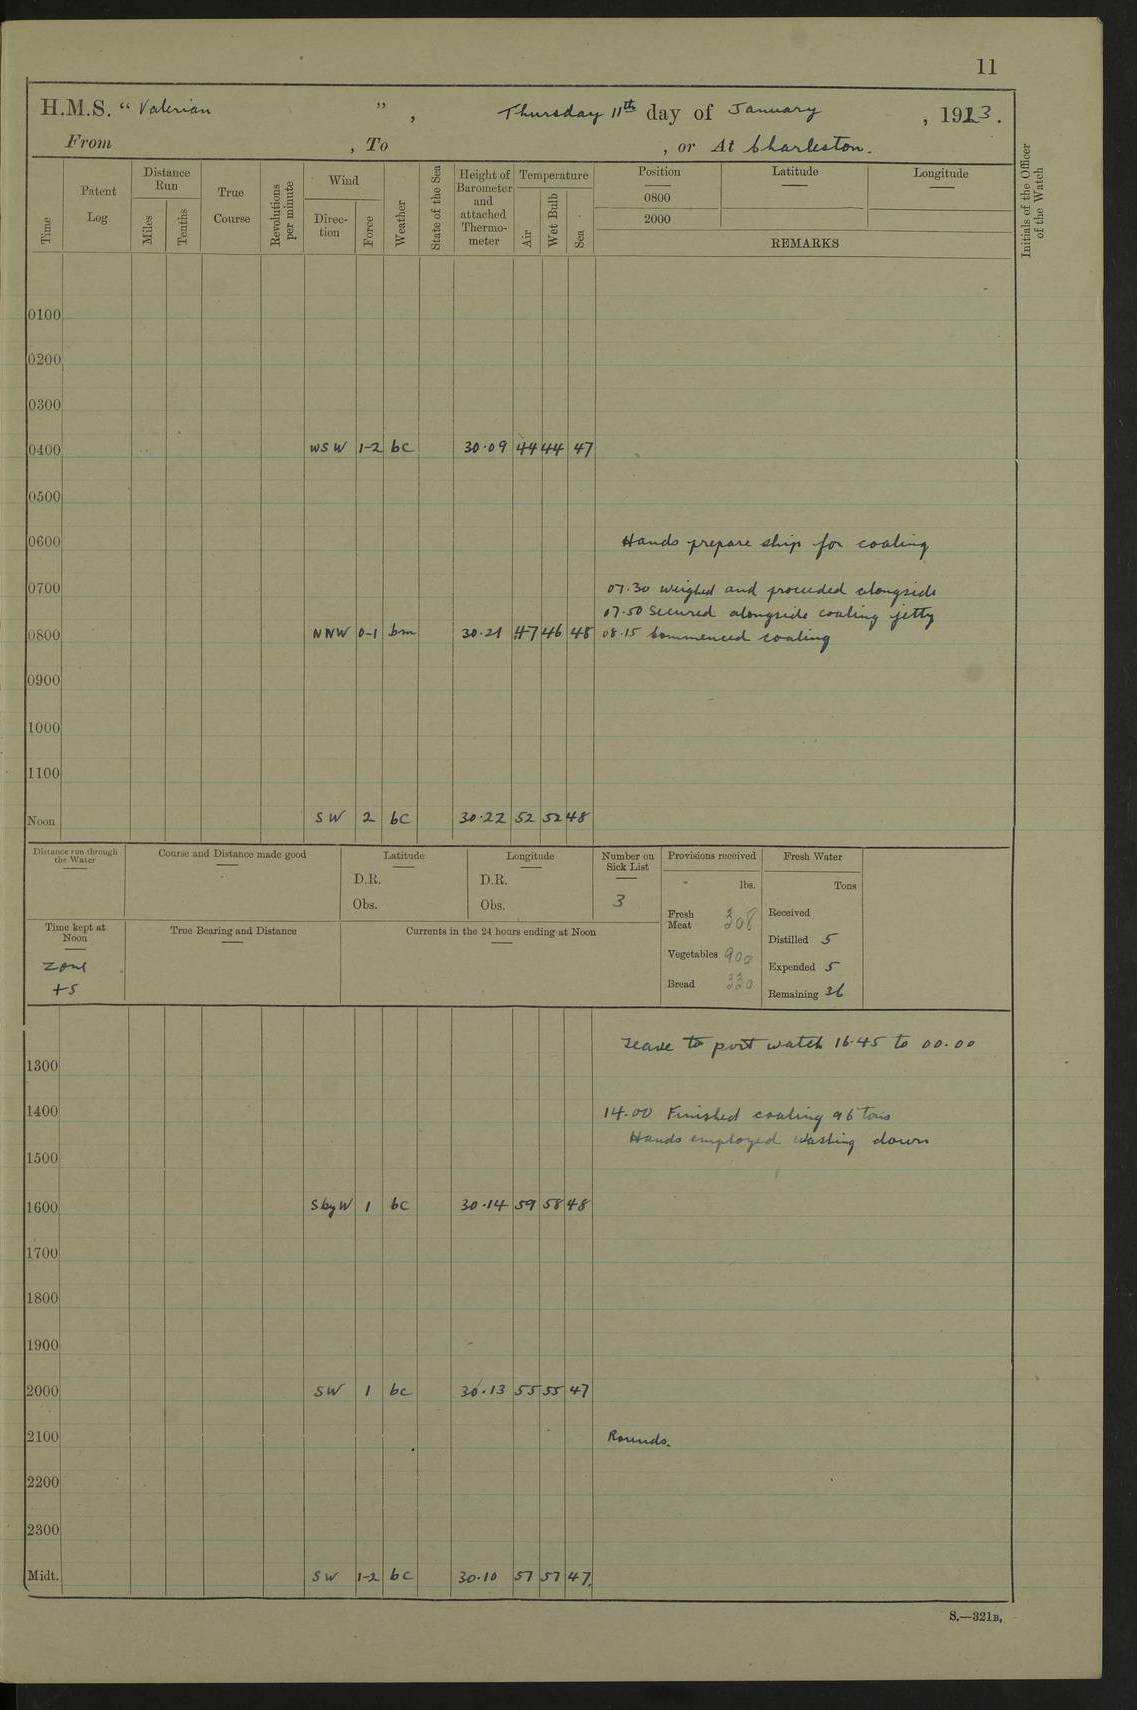 11
H.M.S. “ Valerian ”, Thursday 11th day of January, 1923.
From , To , or At Charleston.
Time
Patent Log
Distance Run
Miles
Tenths
True Course
Revolutions per minute
Wind
Direction
Force
Weather
State of the Sea
Height of Barometer and attached Thermometer
Temperature
Air
Wet Bulb
Sea
Position
0800
2000
Latitude
Longitude
REMARKS
Initials of the Officer of the Watch
0100
0200
0300
0400 WSW 1-2 bc 30.09 44 44 47
0500
0600 Hands prepare ship for coaling
0700 07.30 weighed and proceeded alongside
07.50 Secured alongside coaling jetty
0800 NNW 0-1 bm 30.21 47 46 48 08.15 Commenced coaling
0900
1000
1100
Noon SW 2 bc 30.22 52 52 48
Distance run through the Water
Course and Distance made good
Latitude
D.R.
Obs.
Longitude
D.R.
Obs.
Number on Sick List
3
Provisions received
lbs.
Fresh Meat 308
Vegetables 900
Bread 330
Fresh Water
Tons
Received
Distilled 5
Expended 5
Remaining 36
Time kept at Noon
Zone
+5
True Bearing and Distance
Currents in the 24 hours ending at Noon
Leave to port watch 16.45 to 00.00
1300
1400 14.00 Finished coaling 96 tons
Hands employed washing down
1500
1600 SbyW 1 bc 30.14 59 58 48
1700
1800
1900
2000 SW 1 bc 30.13 55 55 47
2100 Rounds.
2200
2300
Midt. SW 1-2 bc 30.10 57 57 47
S.—321B.